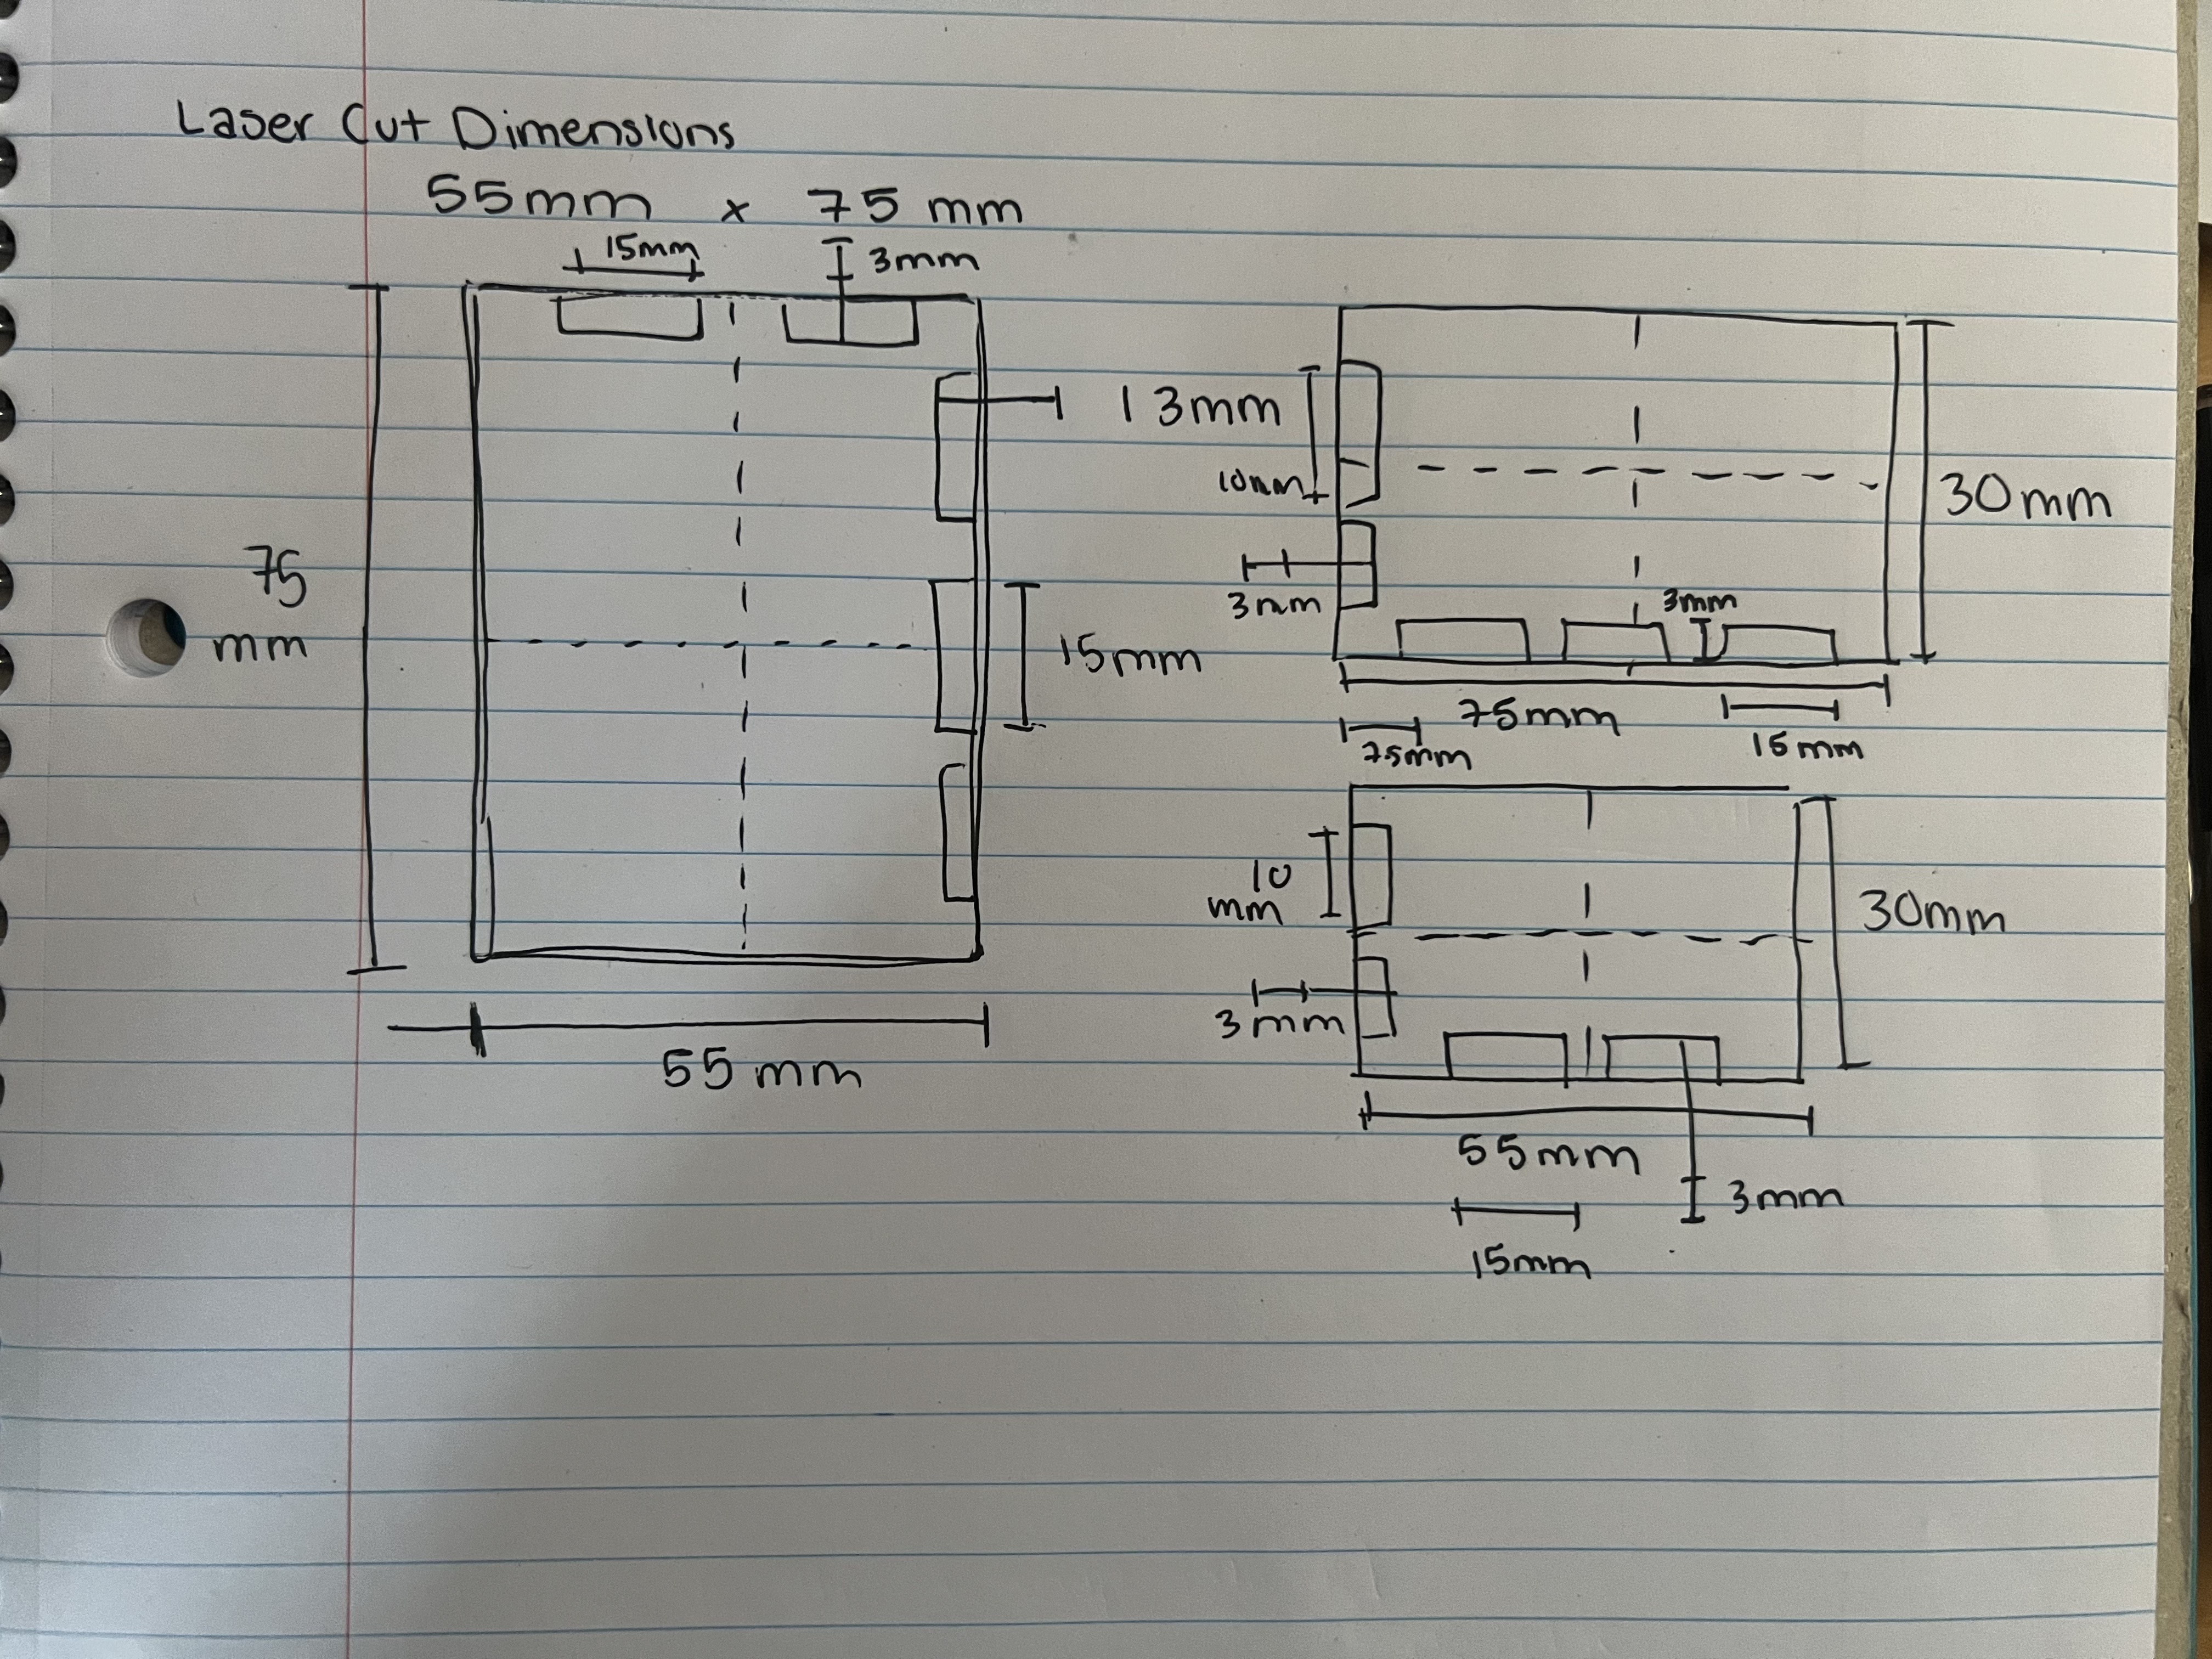 Laser Cut Dimensions
55mm x 75 mm
15mm
3mm
75
mm
3mm
15mm
55mm
10mm
3mm
3mm
30mm
75mm
75mm
15mm
10
mm
3mm
30mm
55mm
3mm
15mm